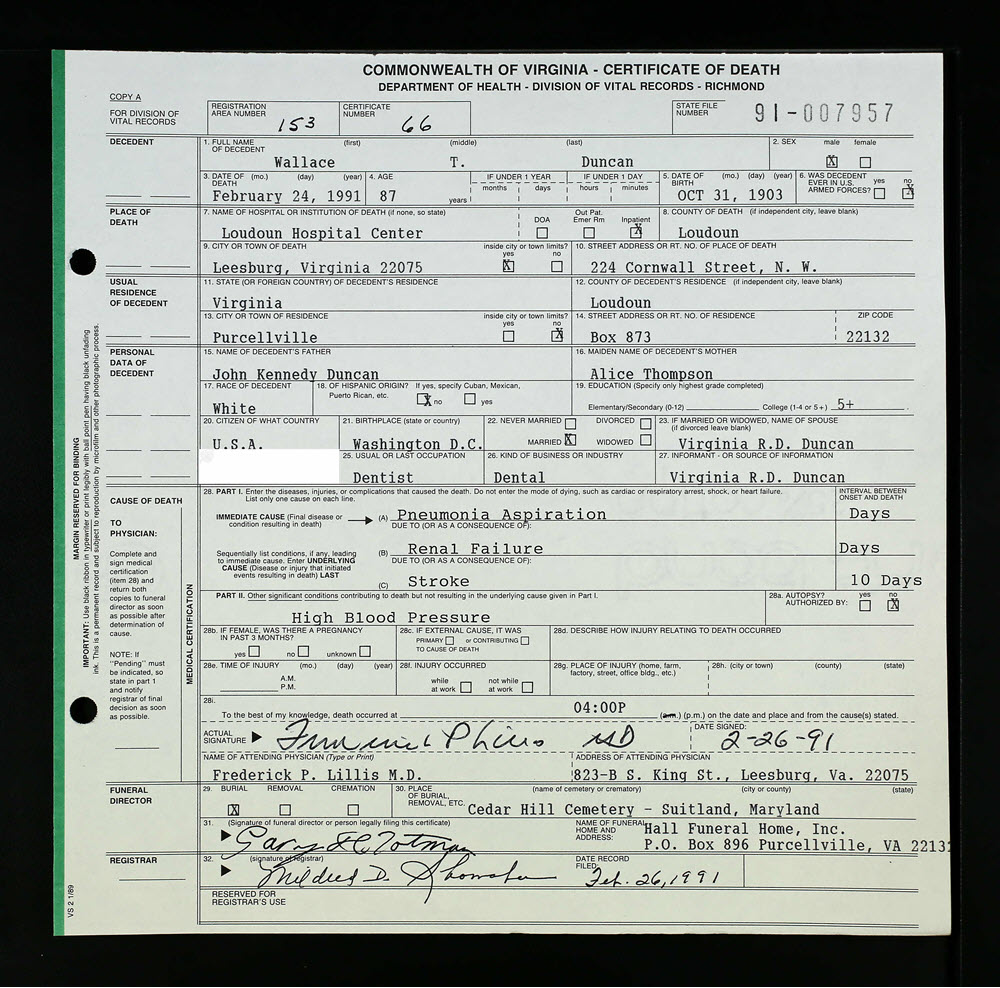 COMMONWEALTH OF VIRGINIA - CERTIFICATE OF DEATH
DEPARTMENT OF HEALTH - DIVISION OF VITAL RECORDS - RICHMOND
COPY A
FOR DIVISION OF VITAL RECORDS
REGISTRATION AREA NUMBER 153
CERTIFICATE NUMBER 66
STATE FILE NUMBER 91-007957
DECEDENT
1. FULL NAME OF DECEDENT (first) (middle) (last)
Wallace T. Duncan
2. SEX male female
X
3. DATE OF DEATH (mo.) (day) (year)
February 24, 1991
4. AGE
87 years
IF UNDER 1 YEAR months days
IF UNDER 1 DAY hours minutes
5. DATE OF BIRTH (mo.) (day) (year)
OCT 31, 1903
6. WAS DECEDENT EVER IN U.S. ARMED FORCES? yes no
X
PLACE OF DEATH
7. NAME OF HOSPITAL OR INSTITUTION OF DEATH (if none, so state)
Loudoun Hospital Center
DOA Out Pat. Emer Rm Inpatient
X
8. COUNTY OF DEATH (if independent city, leave blank)
Loudoun
9. CITY OR TOWN OF DEATH
Leesburg, Virginia 22075
inside city or town limits? yes no
X
10. STREET ADDRESS OR RT. NO. OF PLACE OF DEATH
224 Cornwall Street, N. W.
USUAL RESIDENCE OF DECEDENT
11. STATE (OR FOREIGN COUNTRY) OF DECEDENT'S RESIDENCE
Virginia
12. COUNTY OF DECEDENT'S RESIDENCE (if independent city, leave blank)
Loudoun
13. CITY OR TOWN OF RESIDENCE
Purcellville
inside city or town limits? yes no
X
14. STREET ADDRESS OR RT. NO. OF RESIDENCE
Box 873
ZIP CODE
22132
PERSONAL DATA OF DECEDENT
15. NAME OF DECEDENT'S FATHER
John Kennedy Duncan
16. MAIDEN NAME OF DECEDENT'S MOTHER
Alice Thompson
17. RACE OF DECEDENT
White
18. OF HISPANIC ORIGIN? If yes, specify Cuban, Mexican, Puerto Rican, etc.
X no yes
19. EDUCATION (Specify only highest grade completed)
Elementary/Secondary (0-12) College (1-4 or 5+) 5+
20. CITIZEN OF WHAT COUNTRY
U.S.A.
21. BIRTHPLACE (state or country)
Washington D.C.
22. NEVER MARRIED DIVORCED
MARRIED X WIDOWED
23. IF MARRIED OR WIDOWED, NAME OF SPOUSE (if divorced leave blank)
Virginia R.D. Duncan
25. USUAL OR LAST OCCUPATION
Dentist
26. KIND OF BUSINESS OR INDUSTRY
Dental
27. INFORMANT - OR SOURCE OF INFORMATION
Virginia R.D. Duncan
CAUSE OF DEATH
TO PHYSICIAN:
Complete and
sign medical
certification
(item 28) and
return both
copies to funeral
director as soon
as possible after
determination of
cause.
NOTE: If
"Pending" must
be indicated, so
state in part 1
and notify
registrar of final
decision as soon
as possible.
MEDICAL CERTIFICATION
28. PART I. Enter the diseases, injuries, or complications that caused the death. Do not enter the mode of dying, such as cardiac or respiratory arrest, shock, or heart failure.
List only one cause on each line.
INTERVAL BETWEEN ONSET AND DEATH
IMMEDIATE CAUSE (Final disease or condition resulting in death)
(A) Pneumonia Aspiration Days
DUE TO (OR AS A CONSEQUENCE OF):
Sequentially list conditions, if any, leading to immediate cause. Enter UNDERLYING CAUSE (Disease or injury that initiated events resulting in death) LAST
(B) Renal Failure Days
DUE TO (OR AS A CONSEQUENCE OF):
(C) Stroke 10 Days
PART II. Other significant conditions contributing to death but not resulting in the underlying cause given in Part I.
High Blood Pressure
28a. AUTOPSY? AUTHORIZED BY: yes no
X
28b. IF FEMALE, WAS THERE A PREGNANCY IN PAST 3 MONTHS?
yes no unknown
28c. IF EXTERNAL CAUSE, IT WAS
PRIMARY or CONTRIBUTING
TO CAUSE OF DEATH
28d. DESCRIBE HOW INJURY RELATING TO DEATH OCCURRED
28e. TIME OF INJURY (mo.) (day) (year)
A.M.
P.M.
28f. INJURY OCCURRED
while at work not while at work
28g. PLACE OF INJURY (home, farm, factory, street, office bldg., etc.)
28h. (city or town) (county) (state)
28i.
To the best of my knowledge, death occurred at 04:00P (a.m.) (p.m.) on the date and place and from the cause(s) stated.
ACTUAL SIGNATURE
MD
DATE SIGNED:
2-26-91
NAME OF ATTENDING PHYSICIAN (Type or Print)
Frederick P. Lillis M.D.
ADDRESS OF ATTENDING PHYSICIAN
823-B S. King St., Leesburg, Va. 22075
FUNERAL DIRECTOR
29. BURIAL REMOVAL CREMATION
X
30. PLACE OF BURIAL, REMOVAL, ETC. (name of cemetery or crematory) (city or county) (state)
Cedar Hill Cemetery - Suitland, Maryland
31. (Signature of funeral director or person legally filing this certificate)
NAME OF FUNERAL HOME AND ADDRESS:
Hall Funeral Home, Inc.
P.O. Box 896 Purcellville, VA 2213
REGISTRAR
32. (signature of registrar)
Mildred D.
DATE RECORD FILED:
Feb. 26, 1991
RESERVED FOR REGISTRAR'S USE
VS 2 1/89
MARGIN RESERVED FOR BINDING
IMPORTANT: Use black ribbon in typewriter or print legibly with ball point pen having black unfading
ink. This is a permanent record and subject to reproduction by microfilm and other photographic process.